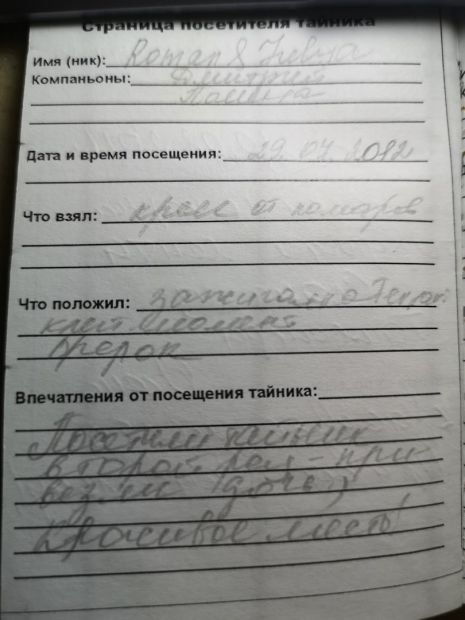 Страница посетителя тайника
Имя (ник): Roman &
Компаньоны: Дмитрий
Полина
Дата и время посещения: 29.04.2012
Что взял: крем от комаров
Что положил: зажигалка
клей Момент
брелок
Впечатления от посещения тайника:
Посетили тайник
второй раз - при-
везли дочь)
Красивое место!